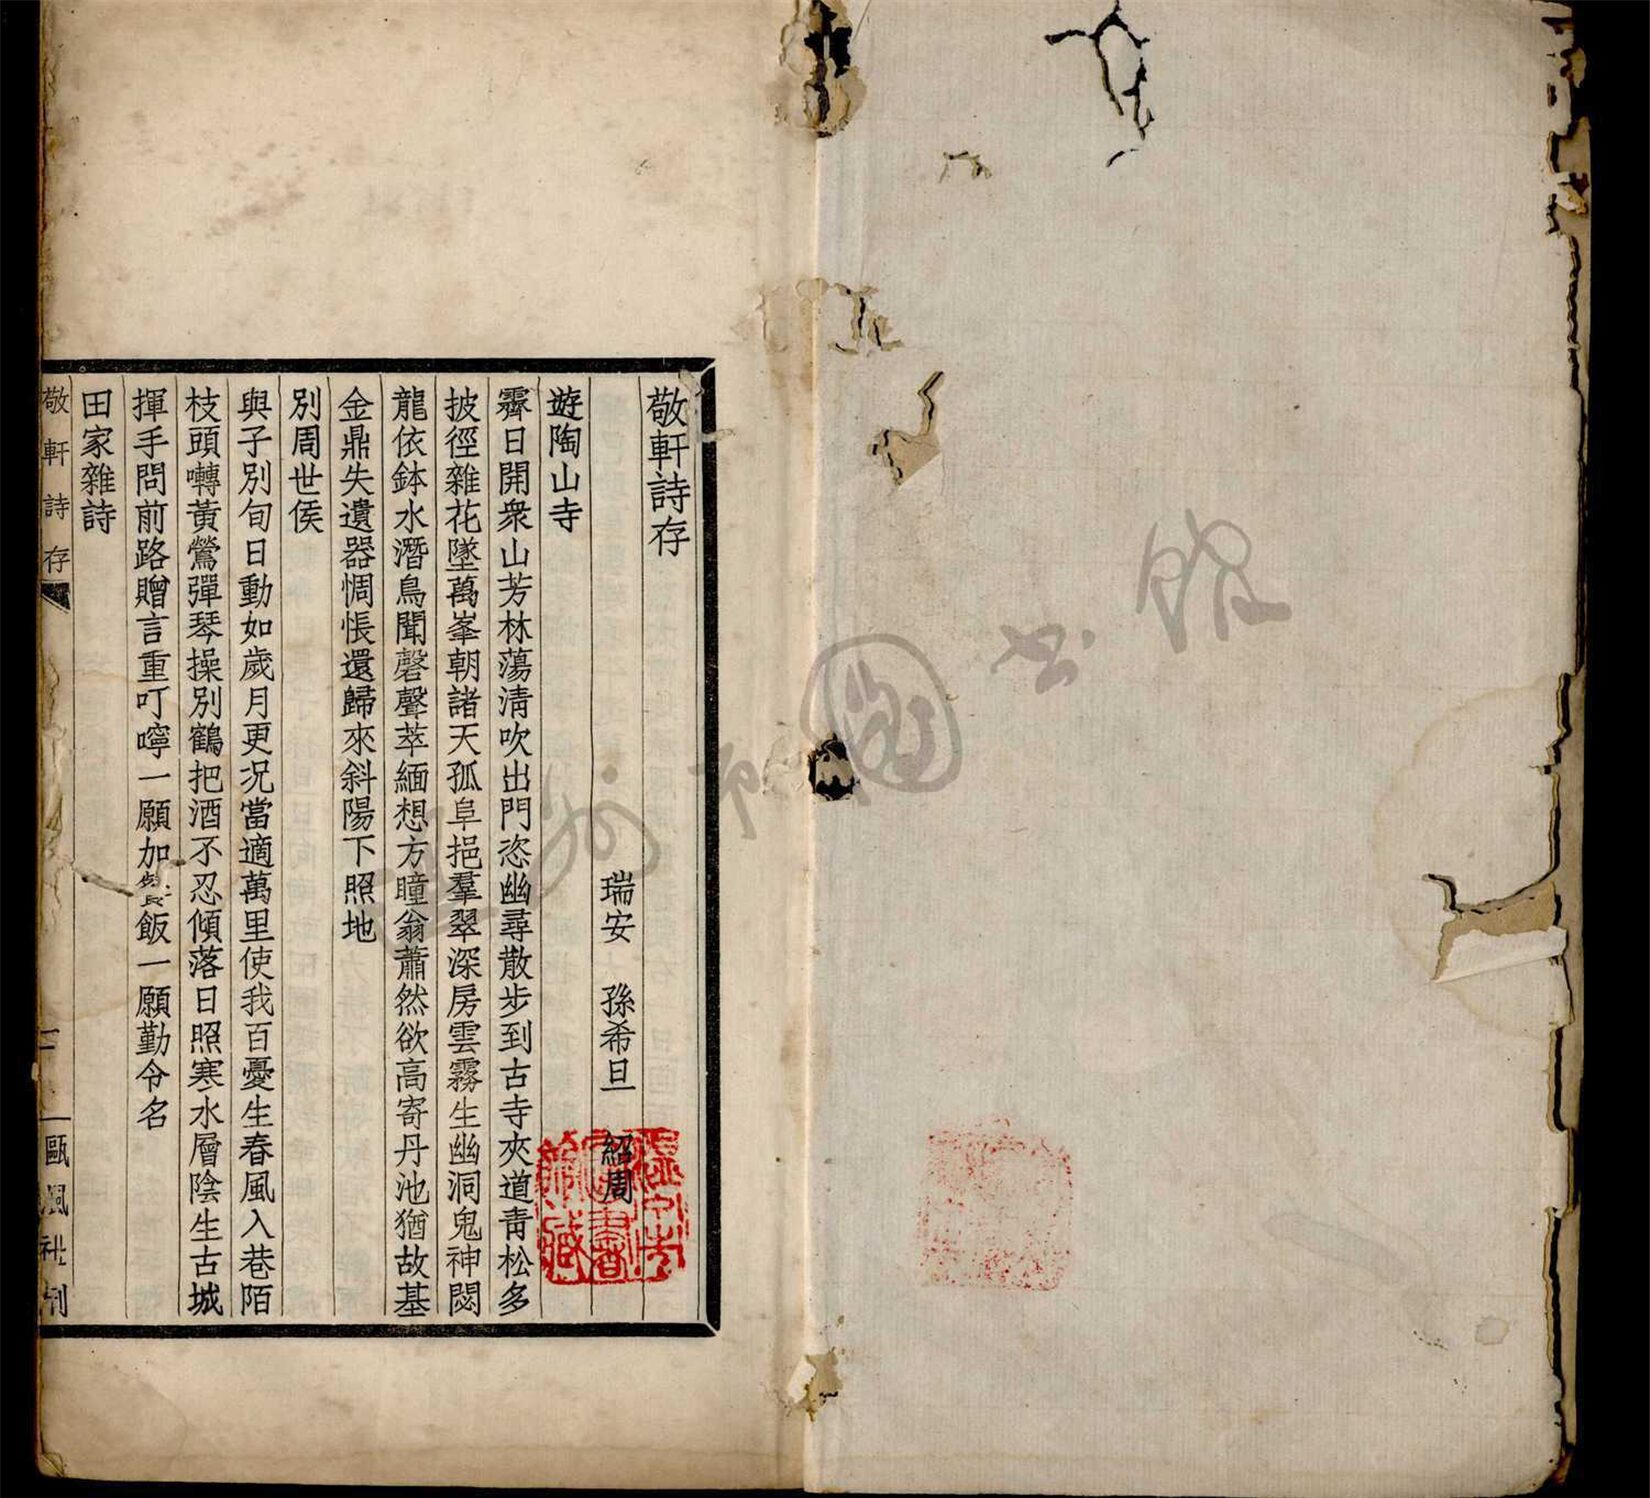 敬軒詩存
瑞安　孫希旦　紹周
遊陶山寺
霽日開衆山芳林蕩淸吹出門恣幽尋散步到古寺夾道靑松多
披徑雜花墜萬峯朝諸天孤阜挹羣翠深房雲霧生幽洞鬼神閟
龍依鉢水潛鳥聞磬聲萃緬想方瞳翁蕭然欲高寄丹池猶故基
金鼎失遺器惆悵還歸來斜陽下照地
別周世侯
與子別旬日動如歲月更況當適萬里使我百憂生春風入巷陌
枝頭囀黃鶯彈琴操別鶴把酒不忍傾落日照寒水層陰生古城
揮手問前路贈言重叮嚀一願加餐飯一願勤令名
田家雜詩
敬軒詩存
一
甌風社刊
溫州市圖書館藏
溫州市圖書館